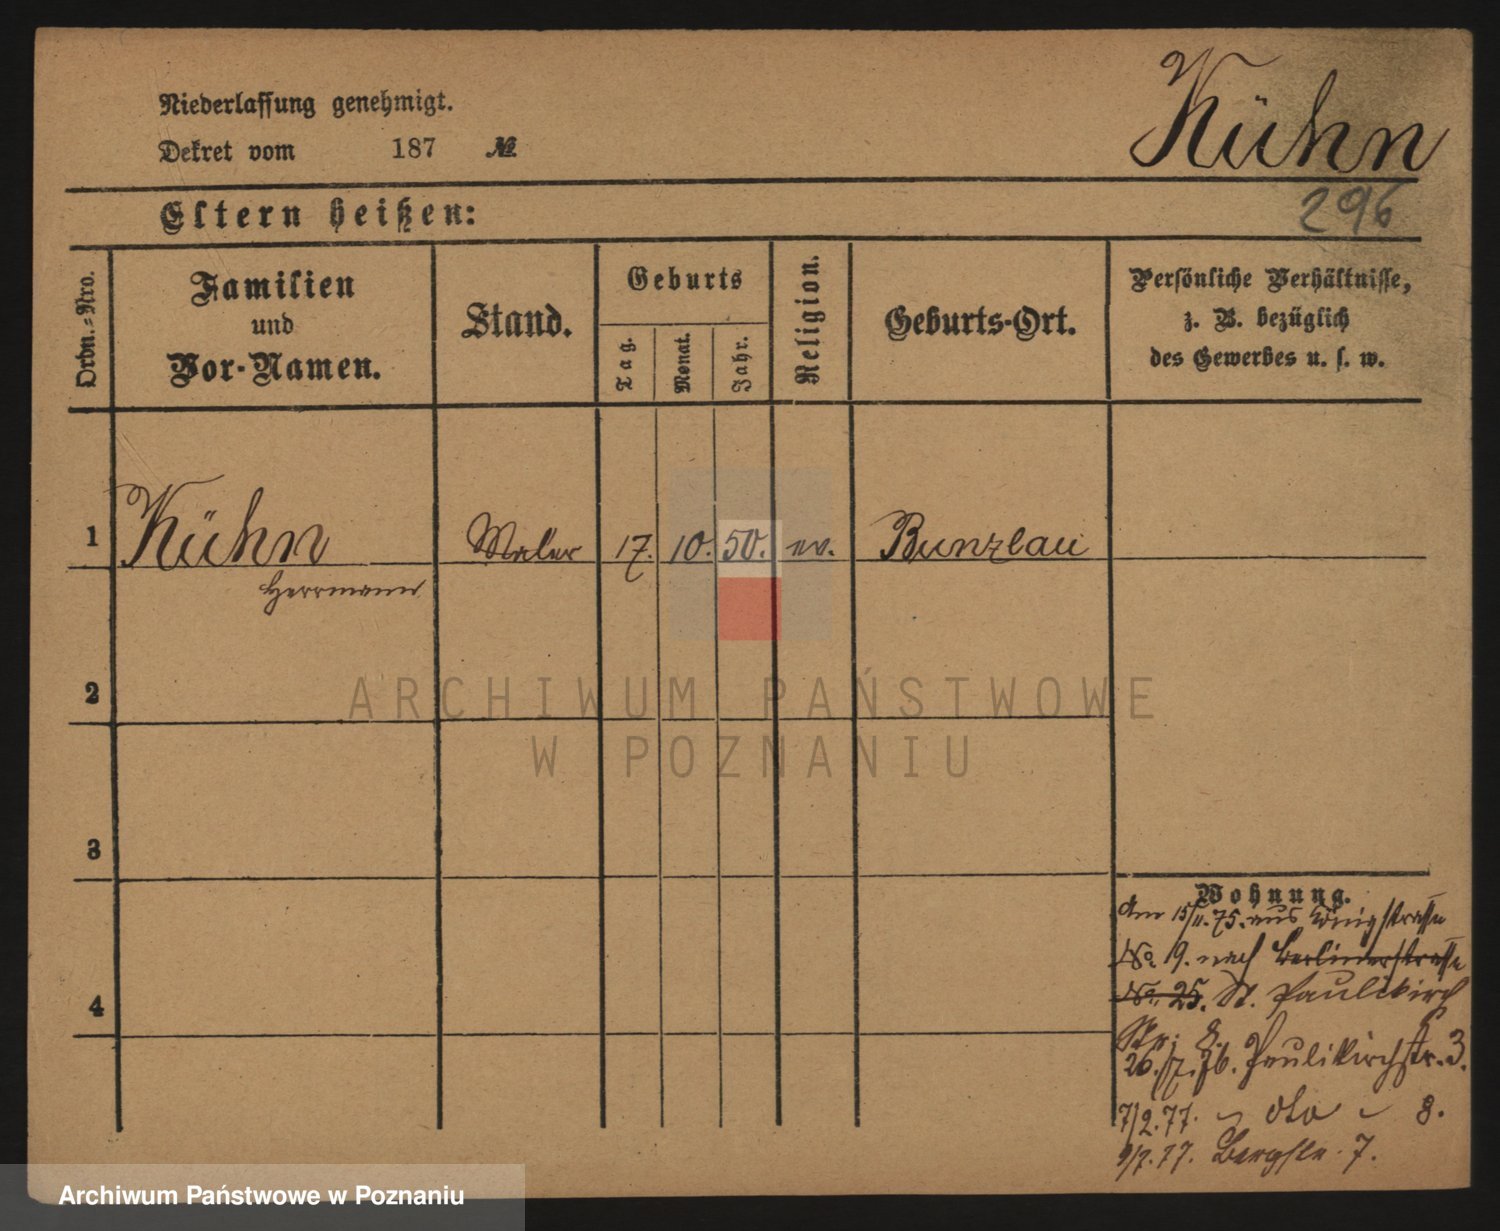 Kühn
Niederlassung genehmigt.
Dekret vom 187 №
296
Eltern heißen:
Ordn.-Nro.
Familien
und
Vor-Namen.
Stand.
Geburts
Tag.
Monat.
Jahr.
Religion.
Geburts-Ort.
Persönliche Verhältnisse,
z. B. bezüglich
des Gewerbes u. s. w.
1 Kühn Maler 17. 10. 50. ev. Bunzlau
Herrmann
2
3
4
Wohnung.
Am 15/11.75. aus Königstrasse
No. 19. nach Berlinerstrasse
No. 25. St. Paulikirch
Str. 8.
26./7.76. Paulikirchstr. 3.
7/2.77. - dto - 8.
9/7.77. Bergstr. 7.
ARCHIWUM PAŃSTWOWE
W POZNANIU
Archiwum Państwowe w Poznaniu